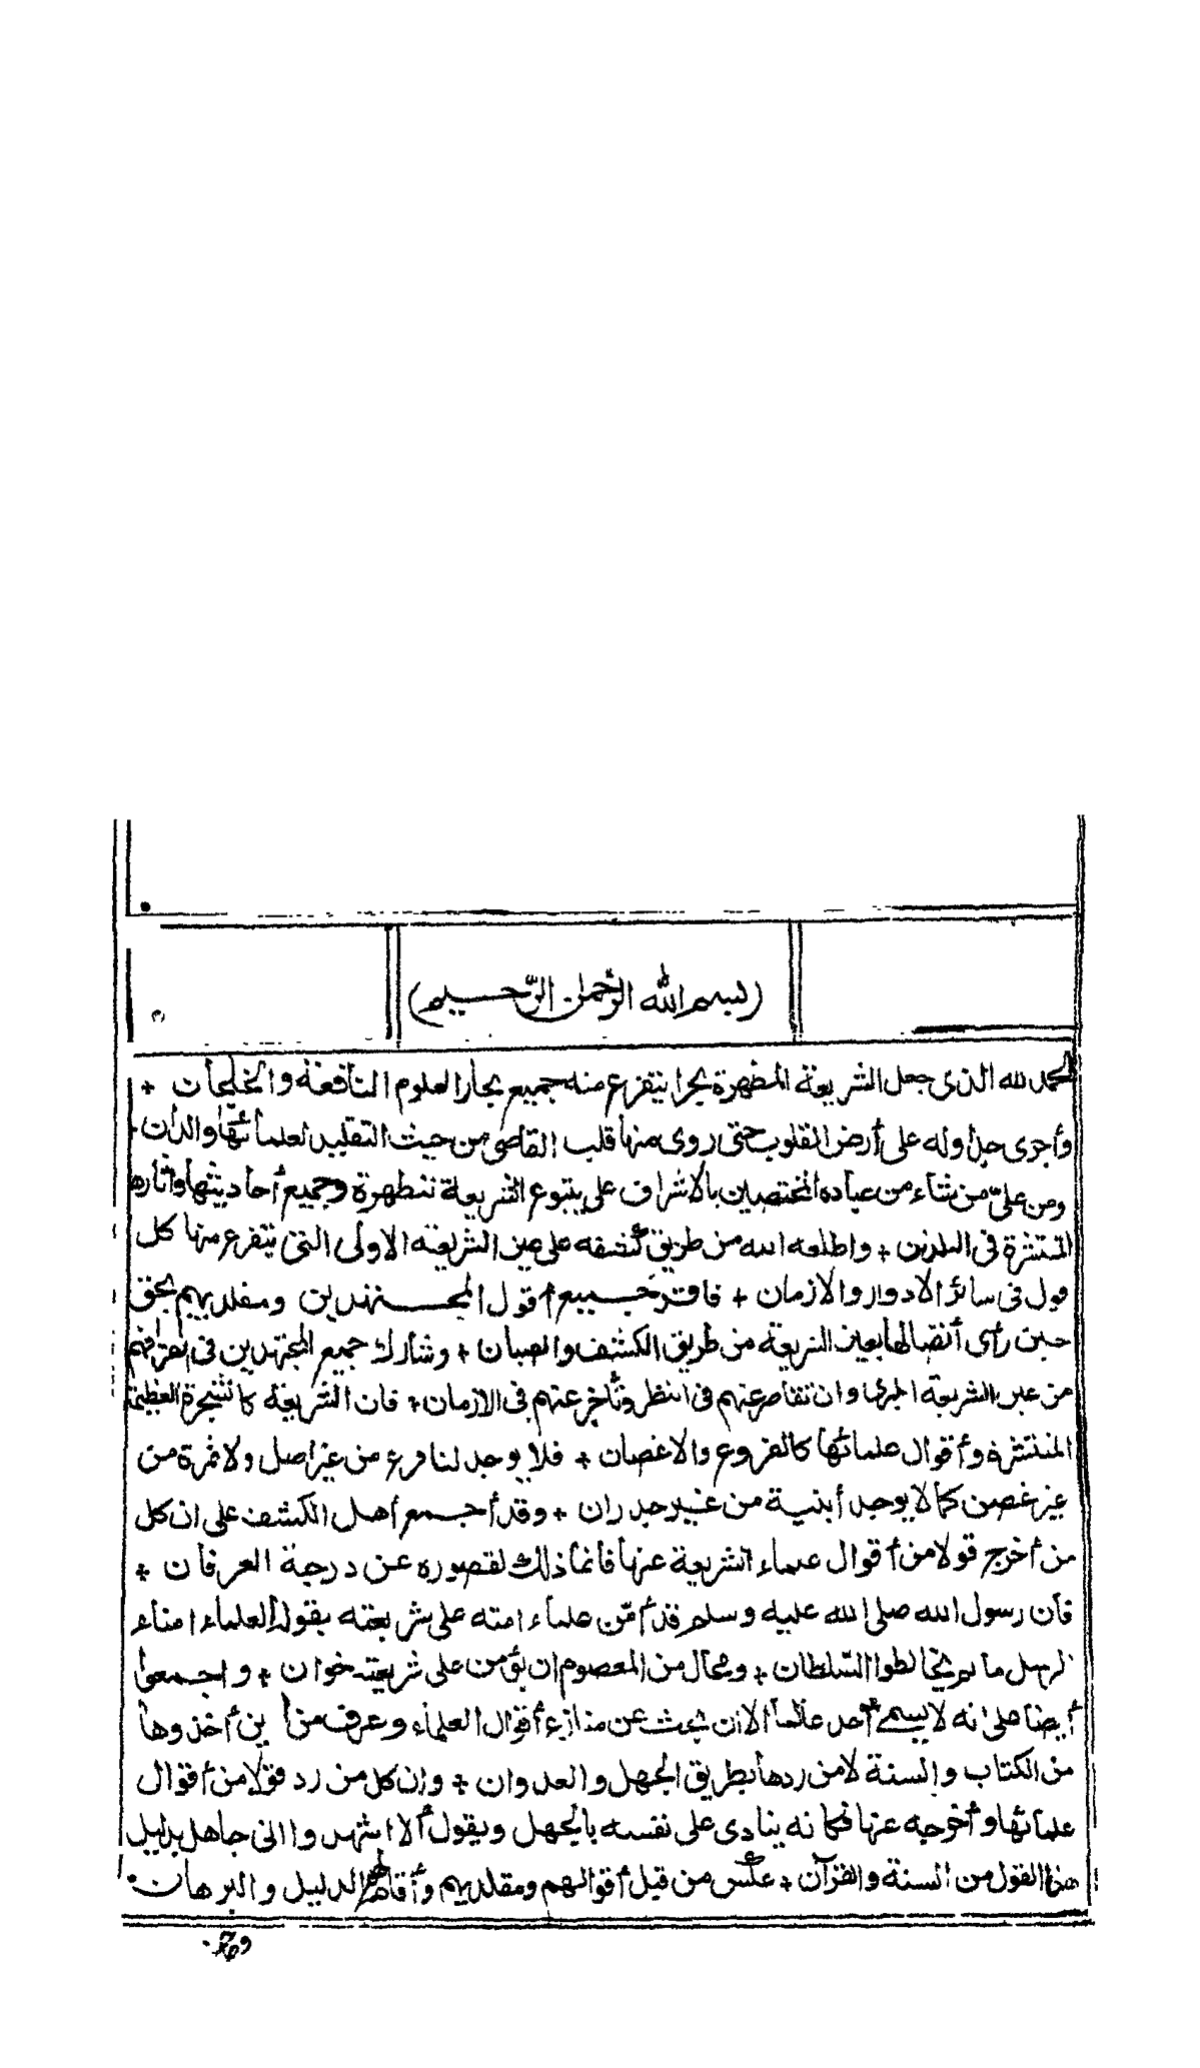 (بسم الله الرّحمٰن الرّحيم)
الحمد لله الذى جعل الشريعة المطهرة بحرا يتفرع منه جميع بحار العلوم النافعة والخلجان +
وأجرى جداوله على أرض القلوب حتى روى منها قلب القاصى من حيث التقليد لعلمائها والدان +
ومن على من شاء من عباده المختصين بالاشراف على ينبوع الشريعة المطهرة وجميع أحاديثها وآثارها
المنتشرة فى البلدان + واطلعه الله من طريق كشفه على عين الشريعة الاولى التى يتفرع منها كل
قول فى سائر الادوار والازمان + فاقر جميع أقوال المجتهدين ومقلديهم بحق
حين رأى اتصالها بعين الشريعة من طريق الكشف والعيان + وشارك جميع المجتهدين فى اغترافهم
من عين الشريعة الكبرى وان تقاصر عنهم فى النظر وتأخر عنهم فى الازمان + فان الشريعة كالشجرة العظيمة
المنتشرة وأقوال علمائها كالفروع والاغصان + فلا يوجد لنا فرع من غير اصل ولا ثمرة من
غير غصن كما لا يوجد أبنية من غير جدران + وقد أجمع أهل الكشف على ان كل
من أخرج قولا من أقوال علماء الشريعة عنها فانما ذلك لقصوره عن درجة العرفان +
فان رسول الله صلى الله عليه وسلم قد أمّن علماء امته على شريعته بقوله العلماء امناء
الرسل ما لم يخالطوا السّلطان + ومحال من المعصوم ان يؤمن على شريعته خوان + واجمعوا
أيضا على انه لا يسمى أحد عالما الا ان بحث عن منازع أقوال العلماء وعرف من أين أخذوها
من الكتاب والسنة لا من ردها بطريق الجهل والعدوان + وان كل من رد قولا من أقوال
علمائها وأخرجه عنها فكأنه ينادى على نفسه بالجهل ويقول ألا اشهدوا انى جاهل بدليل
هذا القول من السنة والقرآن + عكس من قبل أقوالهم ومقلديهم وأقام لهم الدليل والبرهان